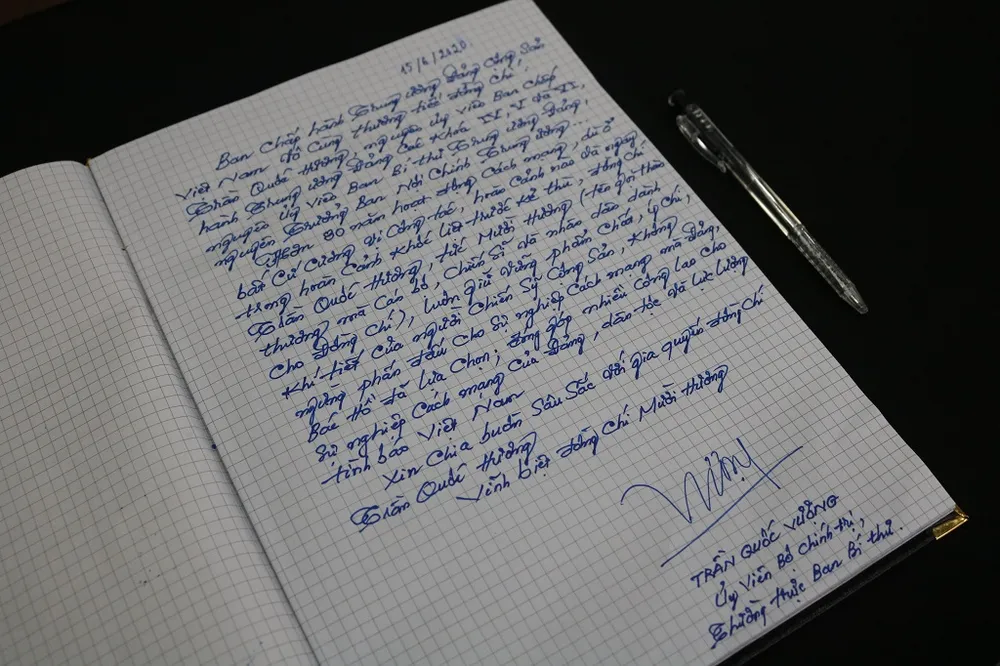 15/6/2020
Ban Chấp hành Trung ương Đảng Cộng Sản
Việt Nam vô cùng thương tiếc đồng chí
Trần Quốc Hương, nguyên Ủy viên Ban Chấp
hành Trung ương Đảng các khóa IV, V và VI,
nguyên Ủy viên Ban Bí thư Trung ương Đảng,
nguyên Trưởng Ban Nội Chính Trung ương...
Hơn 80 năm hoạt động Cách mạng, dù ở
bất cứ cương vị công tác, hoàn cảnh nào và ngay
trong hoàn cảnh khốc liệt trước kẻ thù, đồng chí
Trần Quốc Hương, tức Mười Hương (tên gọi thân
thương mà cán bộ, chiến sĩ và nhân dân dành
cho đồng chí), luôn giữ vững phẩm chất, ý chí,
khí tiết của người chiến sỹ Cộng Sản, không
ngừng phấn đấu cho sự nghiệp Cách mạng mà Đảng,
Bác Hồ đã lựa chọn; đóng góp nhiều công lao cho
sự nghiệp cách mạng của Đảng, dân tộc và lực lượng
tình báo Việt Nam
Xin chia buồn sâu sắc với gia quyến đồng chí
Trần Quốc Hương
Vĩnh biệt đồng chí Mười Hương
TRẦN QUỐC VƯỢNG
Ủy viên Bộ chính trị,
Thường trực Ban Bí thư.